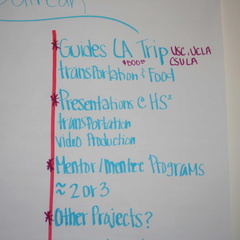 *Guides LA Trip USC, UCLA
$800 CSULA
transportation & Food
*Presentations @ HS²
transportation
Video Production
*Mentor/Mentee Programs
≈ 2 or 3
*Other Projects?